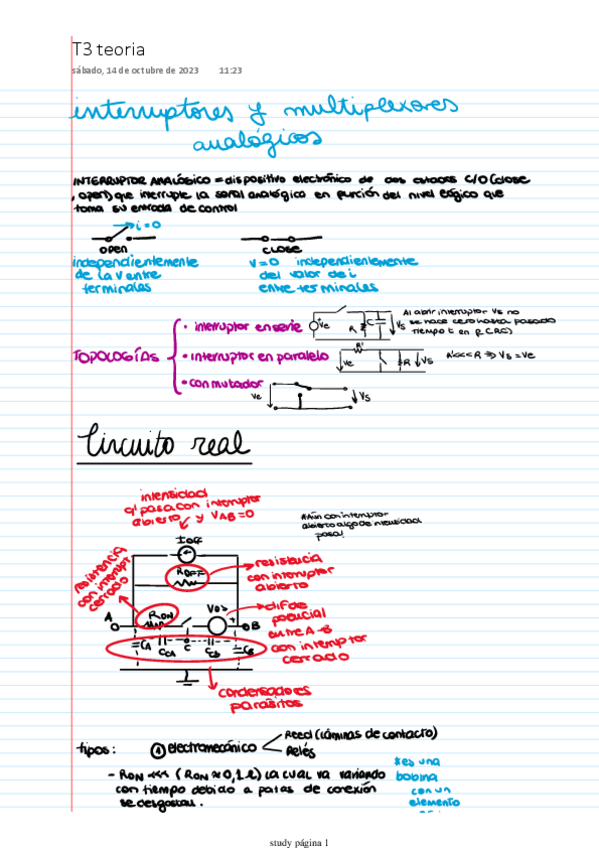 T3 teoria
sábado, 14 de octubre de 2023 11:23
interruptores y multiplexores
analógicos
INTERRUPTOR ANALÓGICO = dispositivo electrónico de dos estados C/O (close
, open) que interrumpe la señal analógica en función del nivel lógico que
toma su entrada de control
i=0
open
close
independientemente
de la V entre
terminales
V=0 independientemente
del valor de i
entre terminales
TOPOLOGÍAS
• interruptor en serie
Ve
R
C
Vs
Al abrir interruptor Vs no
se hace cero hasta pasado
tiempo t en f(RC)
• interruptor en paralelo
Ve
R
Vs
=> Vs = Ve
• conmutador
Ve
Vs
Circuito real
intensidad
q' pasa con interruptor
abierto y VAB=0
*Aún con interruptor
abierto algo de intensidad
pasa!
IOFF
ROFF
resistencia
con interruptor
abierto
resistencia
con interrupt
cerrado
A
RON
Vos
+
B
dif de
potencial
entre A-B
con interruptor
cerrado
CA
CCA
C
CCB
CB
condensadores
parásitos
tipos:
① electromecánico
Reed (láminas de contacto)
Relés
- RON <<< (RON ≈ 0,1 Ω) la cual va variando
con tiempo debido a patas de conexión
se desgastan.
*es una
bobina
con un
elemento
study página 1